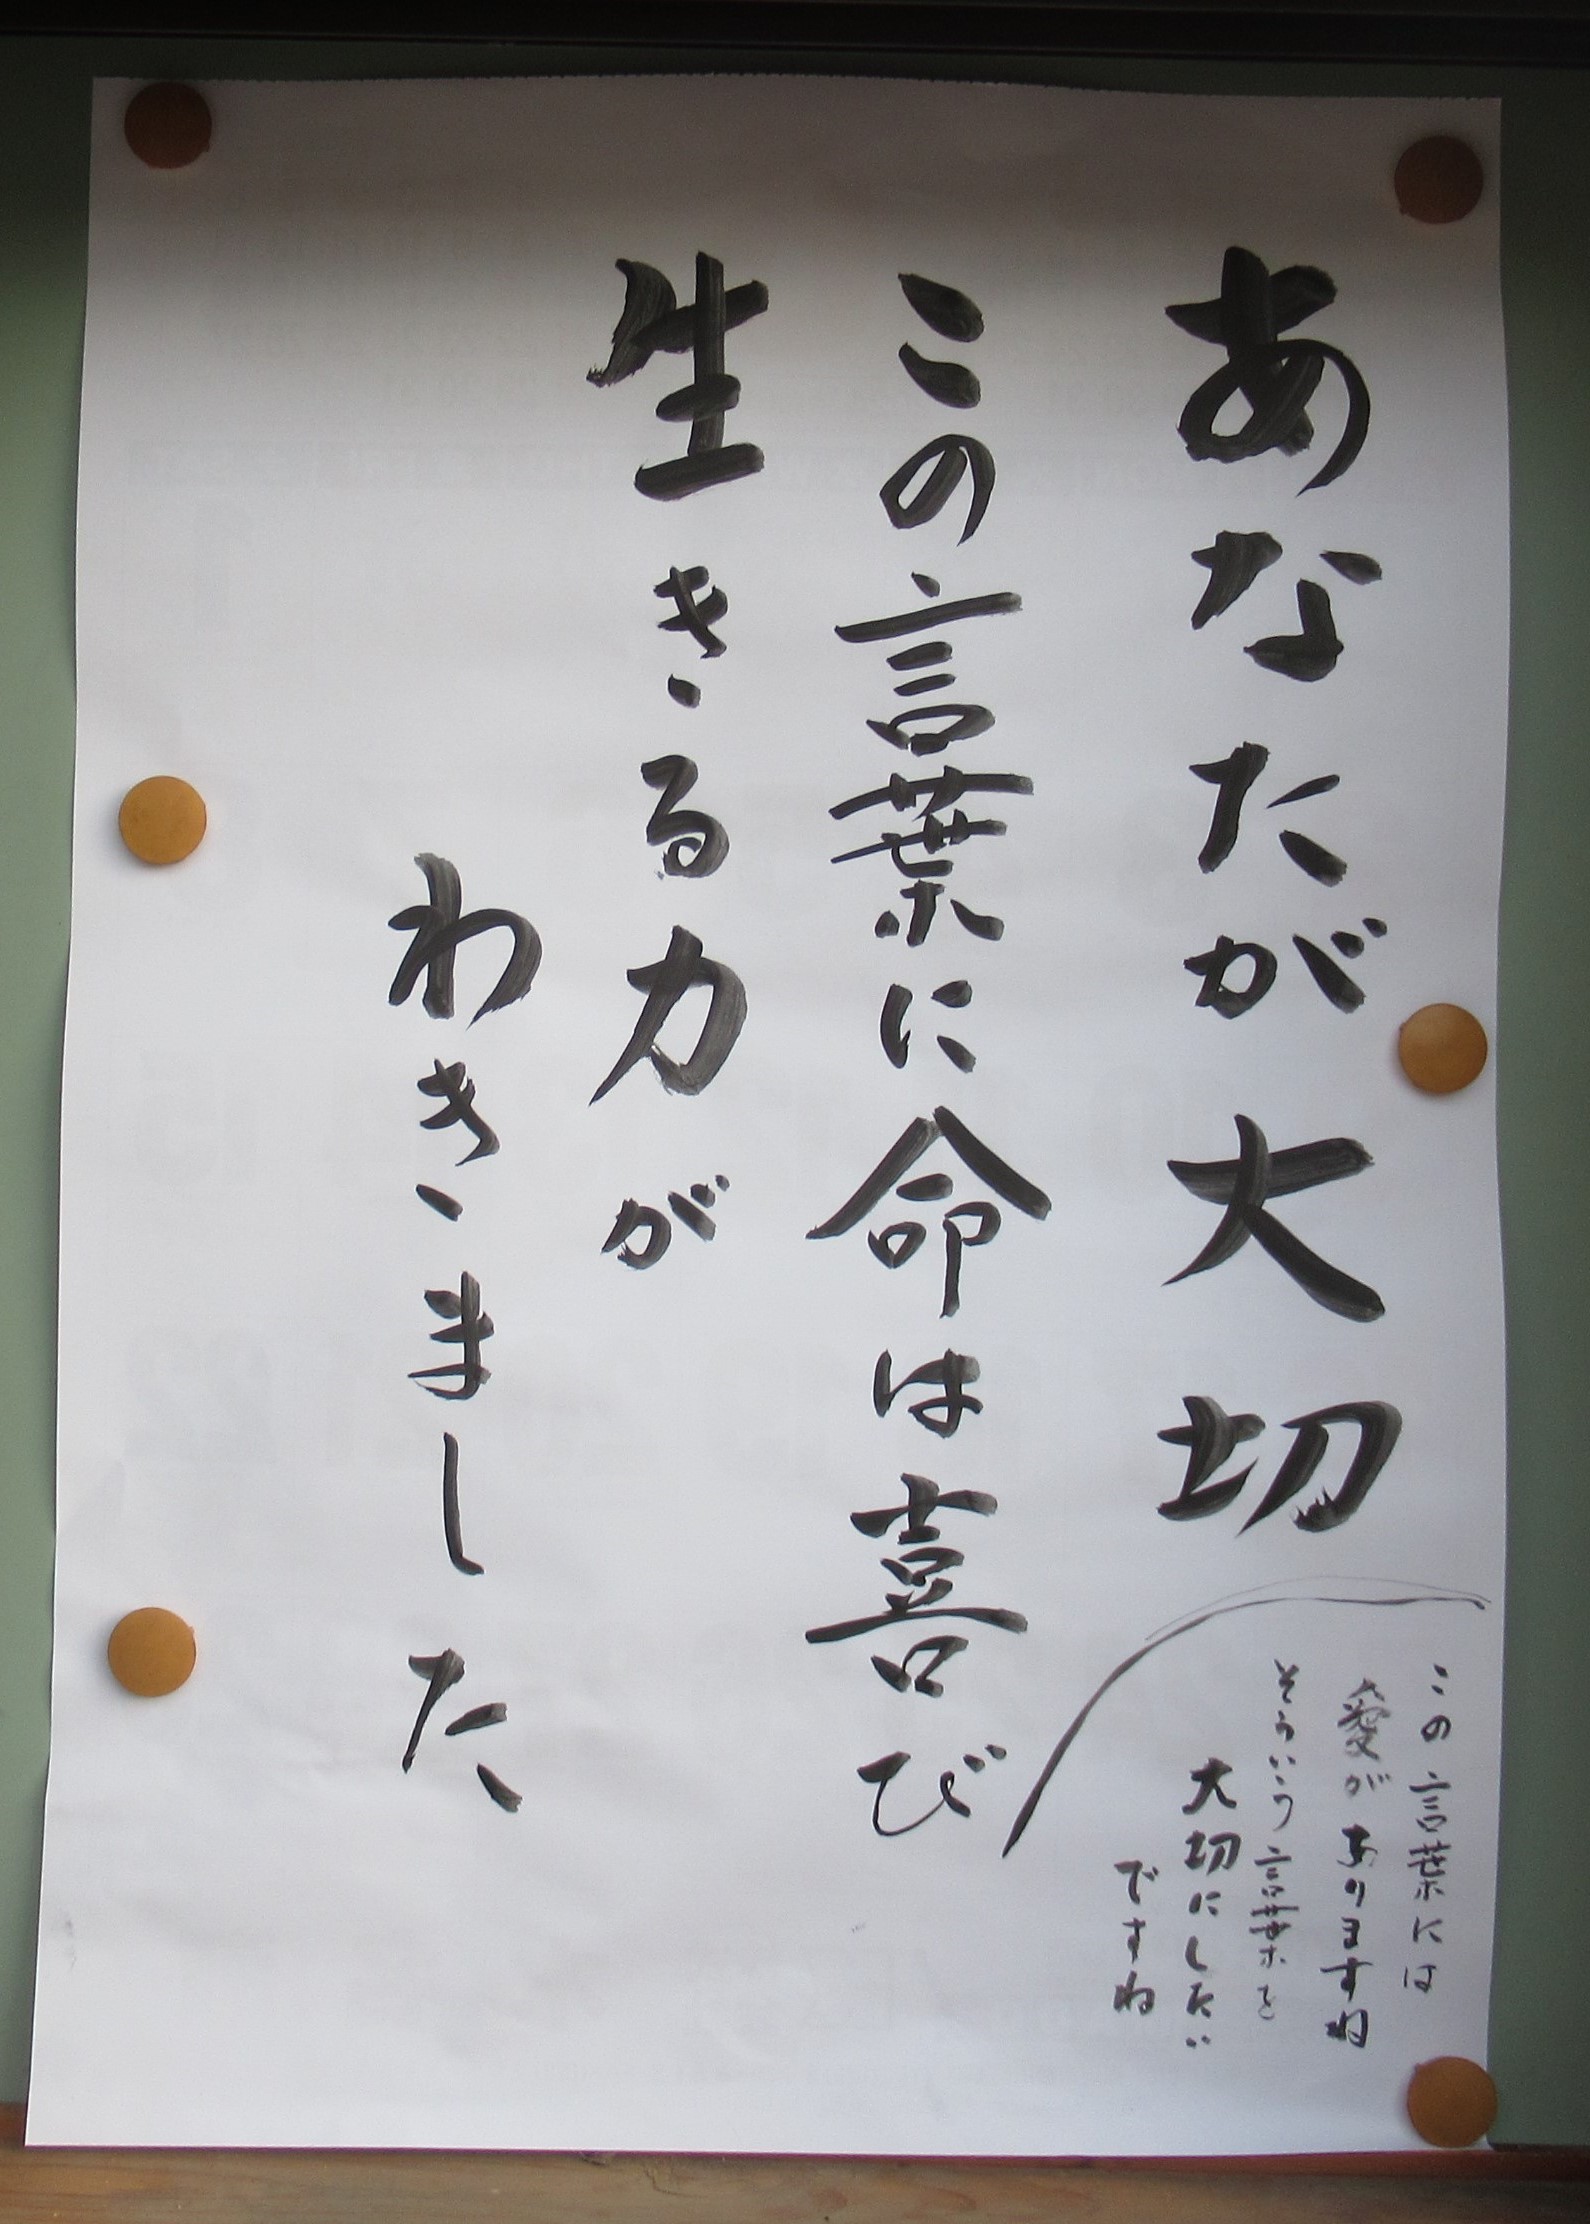 あなたが大切
この言葉に命は喜び
生きる力が
わきました
この言葉には
愛がありますね
そういう言葉を
大切にしたい
ですね